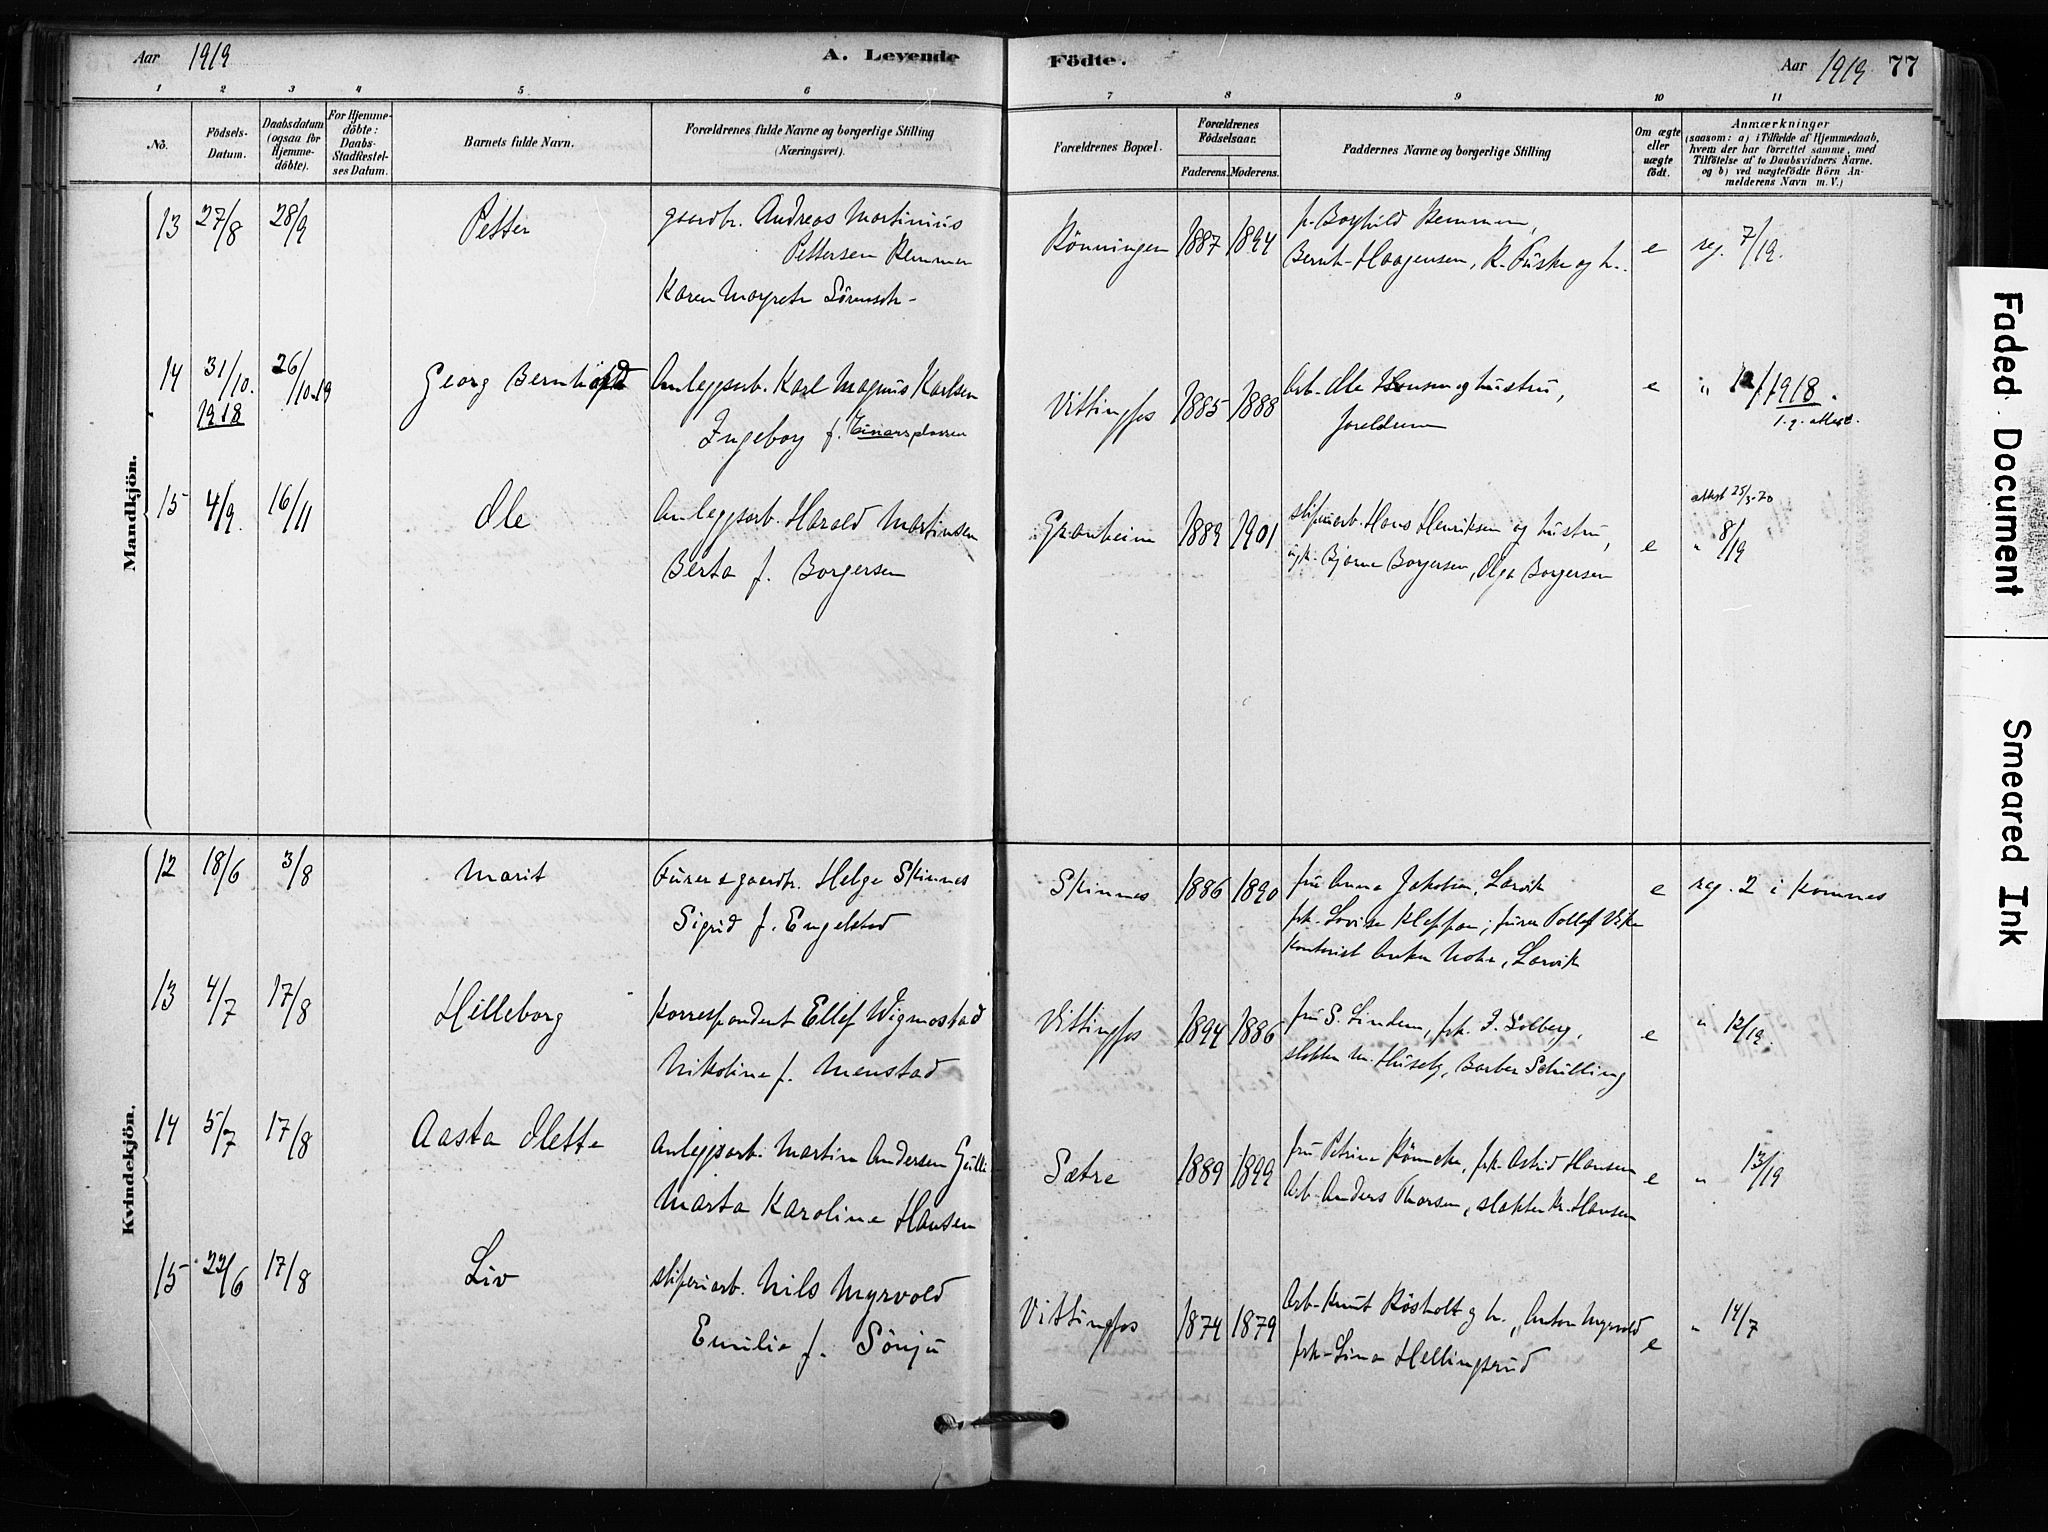 Aar 1919 A. Levende Födte. Aar 1919 77
1 2 3 4 5 6 7 8 9 10 11
No.
Födsels-Datum.
Daabsdatum (ogsaa for Hjemmedöbte).
For Hjemmedöbte: Daabs-Stadfæstelses Datum.
Barnets fulde Navn.
Forældrenes fulde Navne og borgerlige Stilling (Næringsvei).
Forældrenes Bopæl.
Forældrenes Födselsaar.
Faderens. Moderens.
Faddernes Navne og borgerlige Stilling
Om ægte eller uægte födt.
Anmærkninger
(saasom: a) i Tilfælde af Hjemmedaab, hvem der har forrettet samme, med Tilföielse af to Daabsvidners Navne. og b) ved uægtefödte Börn Anmelderens Navn m. V.)
Mandkjön.
13 27/8 28/9 Petter gaardbr. Andreas Martinius
Pettersen Remmen
Karen Margrete Sörensdtr-
Rönningen 1887 1894 fr. Borghild Remmen,
Bernt Haagensen, K. Fuske og h..
e reg. 7/19.
14 31/10. 1918 26/10.19 Georg Bernhard Anleggsarb. Karl Magnus Karlsen
Ingeborg f. Einarsplassen
Vittingfos 1885 1888 Arb. Ole Hansen og hustru,
foreldrene
e " 12/1918.
1.g. attest.
15 4/9. 16/11 Ole Anleggsarb. Harald Martinsen
Berta f. Borgersen
Granheim 1889 1901 sliperiarb. Hans Henriksen og hustru,
ungk. Bjarne Borgersen, Olga Borgersen
e attest 25/3-70
" 8/19
Kvindekjön.
12 18/6 3/8 Marit Furer & gaardbr. Helge Skinnes
Sigrid f. Engelstad
Skinnes 1886 1890 fru Anna Jakobsen, Larvik
frk. Lovise Kleppen; furer Tollef Vike
Kontorist Anker Mohn, Larvik
e reg. 2 i Komnes
13 4/7 17/8 Hilleborg Korrespondent Ellef Wigmostad
Nikoline f. Menstad
Vittingfos 1894 1886 fru S. Lindem, frk. I. Solberg,
slakter M. Huseby, Barber Schilling
e " 12/19.
14 5/7 17/8 Aasta Olette Anleggsarb. Martin Andersen Gulli
Marta Karoline Hansen
Sætre 1889 1899 fru Petrine Rönneke, frk. Astrid Hansen
Arb. Anders Thorsen, slakter Kr. Hansen
e " 13/19
15 22/6 17/8 Liv sliperiarb. Nils Myrvold
Emilie f. Sönju
Vittingfos 1874 1879 Arb. Knut Rösholt og h., Anton Myrvold
frk. Lina Hellingsrud
e " 14/7
Faded Document
Smeared Ink